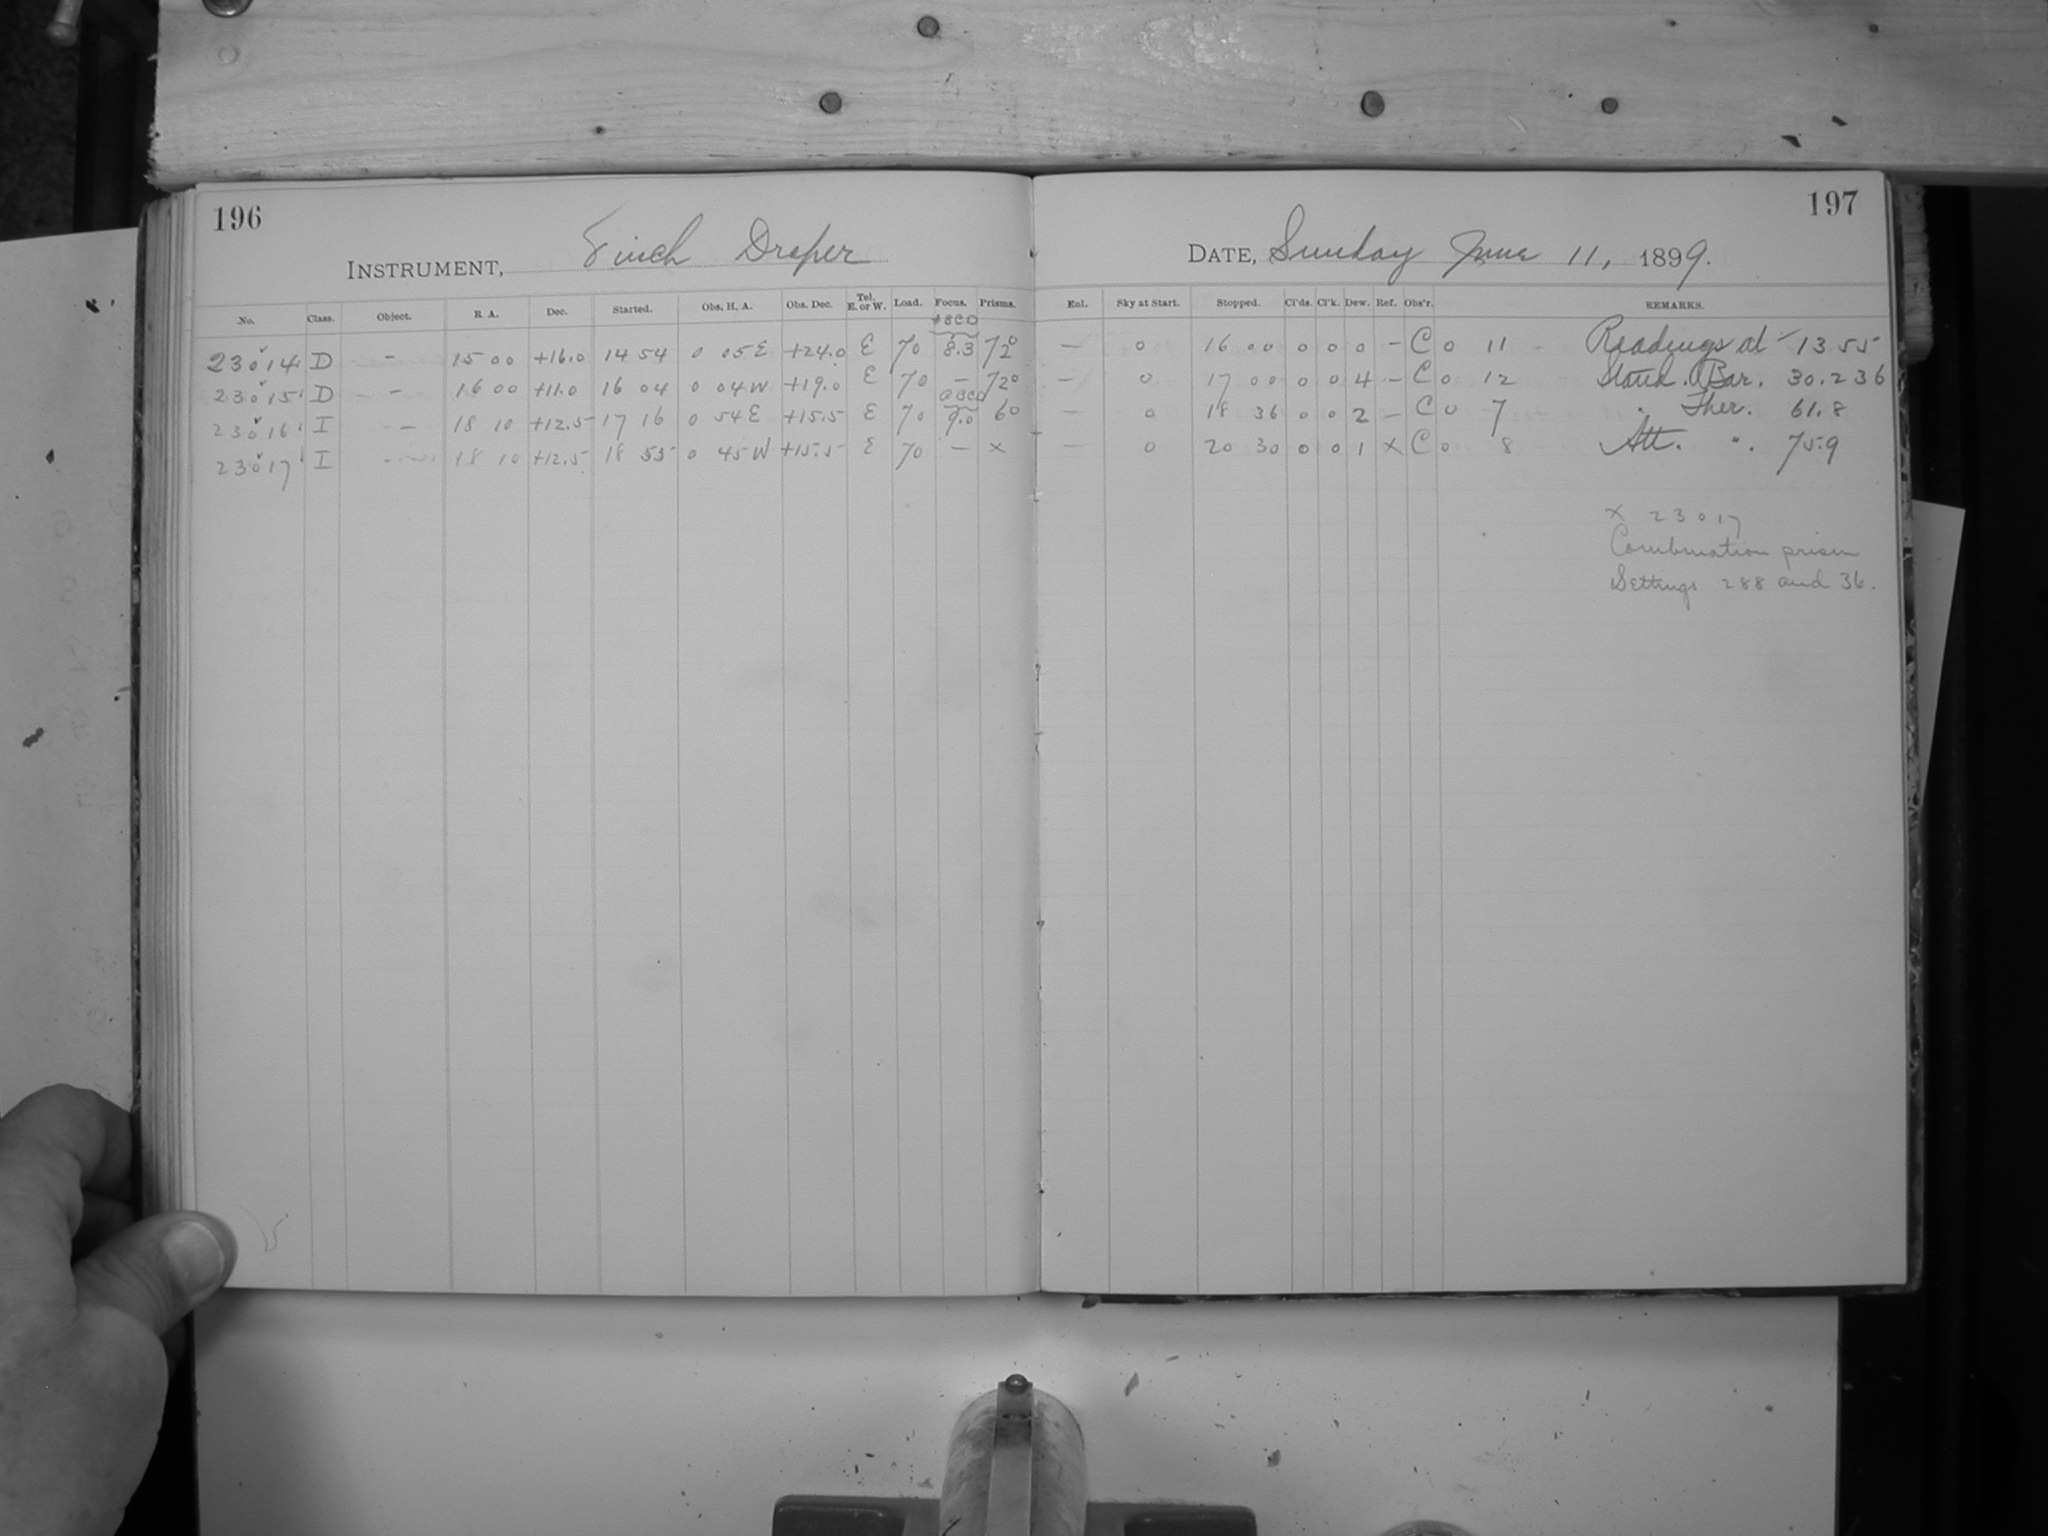 196
INSTRUMENT, 8 inch Draper
No. Class. Object. R. A. Dec. Started. Obs. H. A. Obs. Dec. Tel. E. or W. Load. Focus. Prisms.
23014 D - 15 00 +16.0 14 54 0 05 E +24.0 E 70 8.3 72°
23015 D - 16 00 +11.0 16 04 0 04 W +19.0 E 70 - 72°
23016 I - 18 10 +12.5 17 16 0 54 E +15.5 E 70 9.0 60
23017 I - 18 10 +12.5 18 55 0 45 W +15.5 E 70 - x
197
DATE, Sunday June 11, 1899.
Enl. Sky at Start. Stopped. Cl'ds. Cl'k. Dew. Ref. Obs'r. REMARKS.
- 0 16 00 0 0 0 - C 0 11 Readings at 13 55
- 0 17 00 0 0 4 - C 0 12 Stand. Bar. 30.236
- 0 18 36 0 0 2 - C 0 7 " Ther. 61.8
- 0 20 30 0 0 1 x C 0 8 Att. " 75.9
x 23017
Combination prism
Settings 288 and 36.